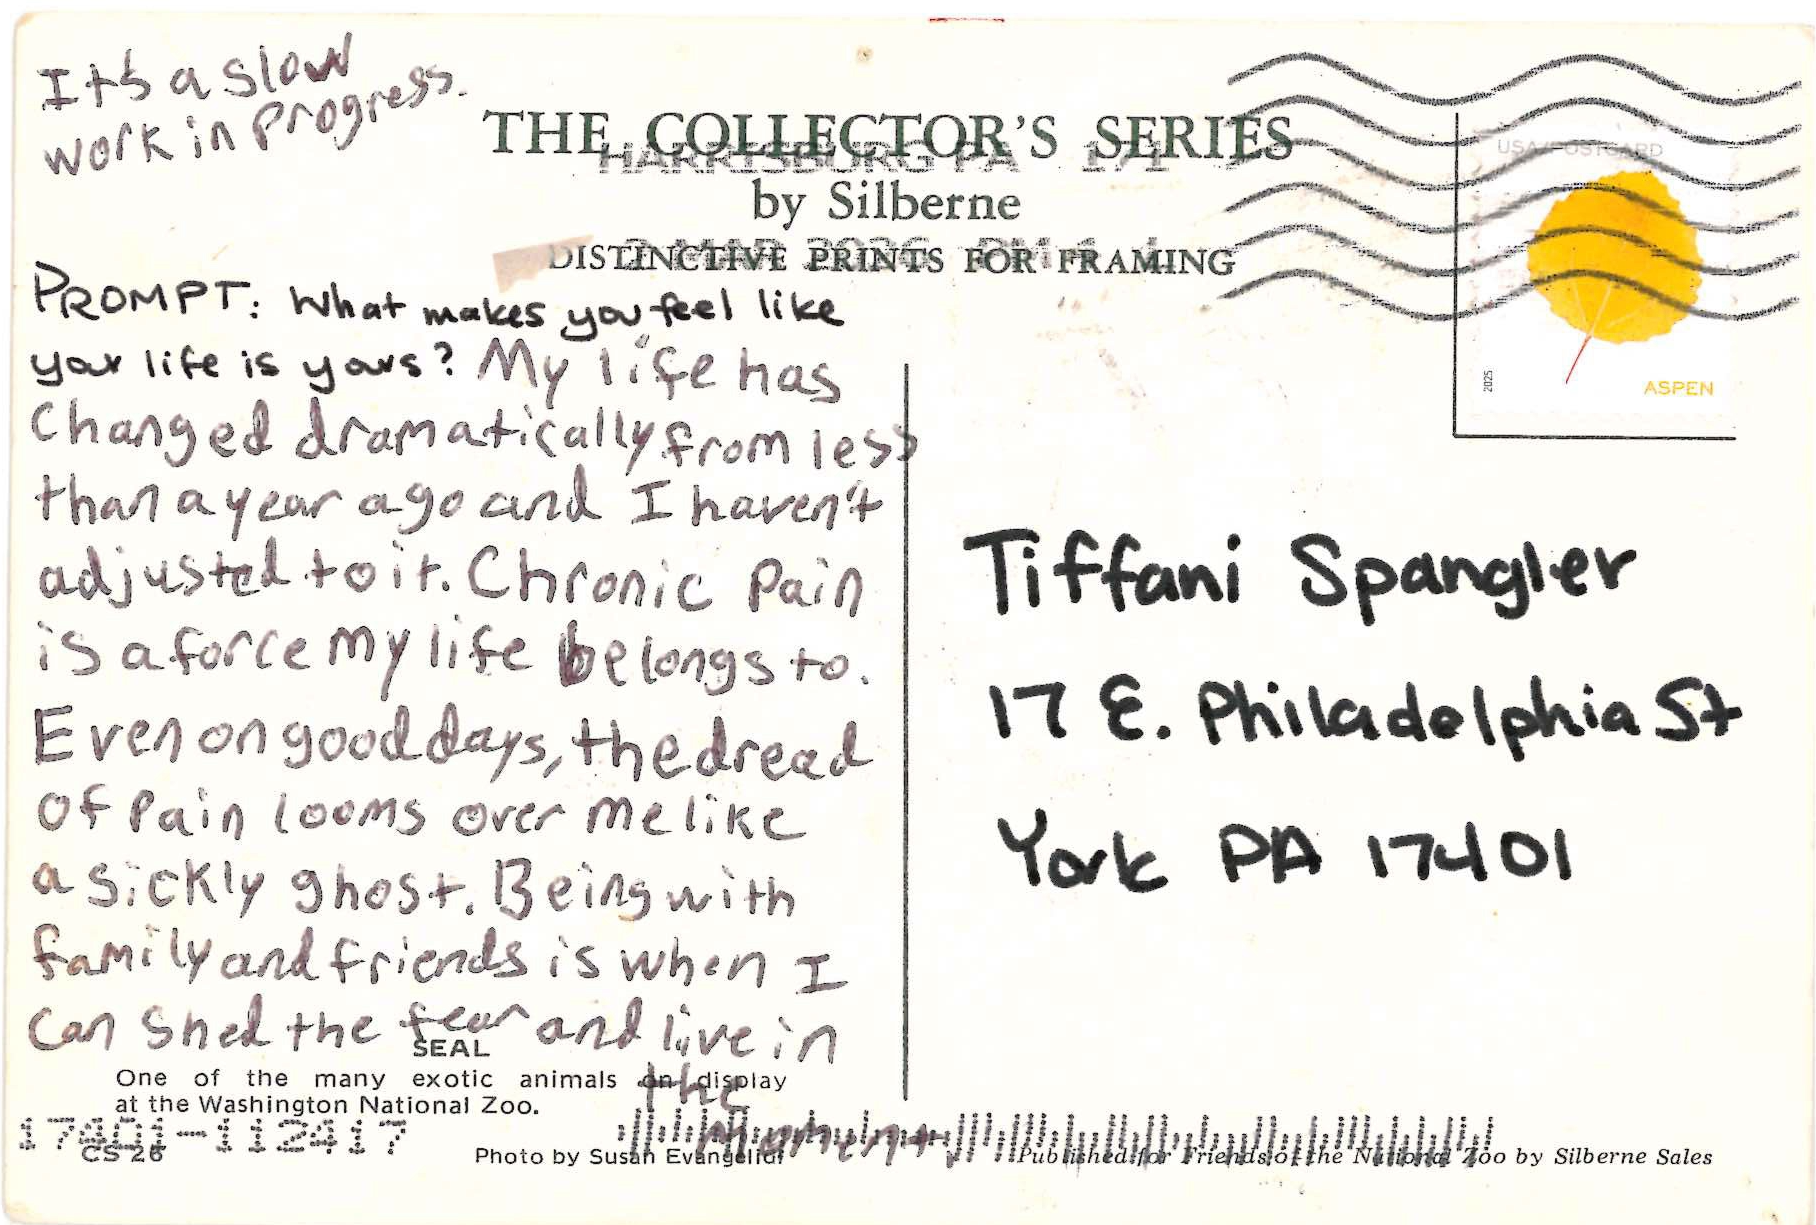 It's a slow
work in progress.
THE COLLECTOR'S SERIES
HARRISBURG PA 171
by Silberne
DISTINCTIVE PRINTS FOR FRAMING
2 MAR 2026 PM 1
USA/POSTCARD
2025
ASPEN
PROMPT: What makes you feel like
your life is yours? My life has
changed dramatically from less
than a year ago and I haven't
adjusted to it. Chronic pain
is a force my life belongs to.
Even on good days, the dread
of pain looms over me like
a sickly ghost. Being with
family and friends is when I
can shed the fear and live in
the
moment
Tiffani Spangler
17 E. Philadelphia St
York PA 17401
SEAL
One of the many exotic animals on display
at the Washington National Zoo.
17401-112417
CS 26
Photo by Susan Evangelidi
Published for Friends of the National Zoo by Silberne Sales